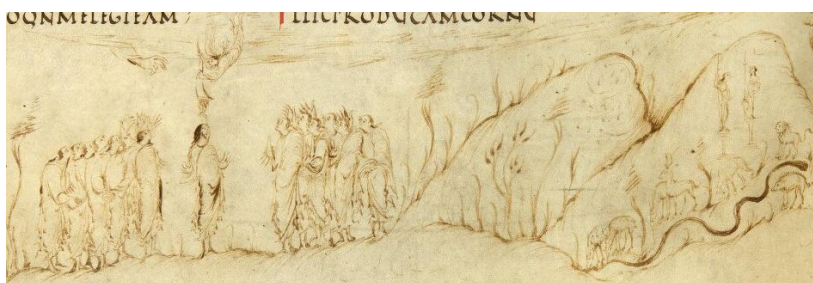 OQNMELEGIEAM ; ILLICPRODUCAMCORNU